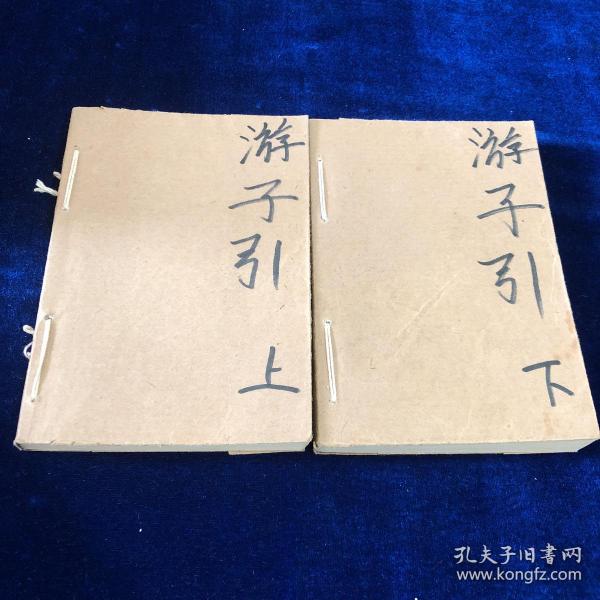 游子引
上
游子引
下
孔夫子旧書网
www.kongfz.com